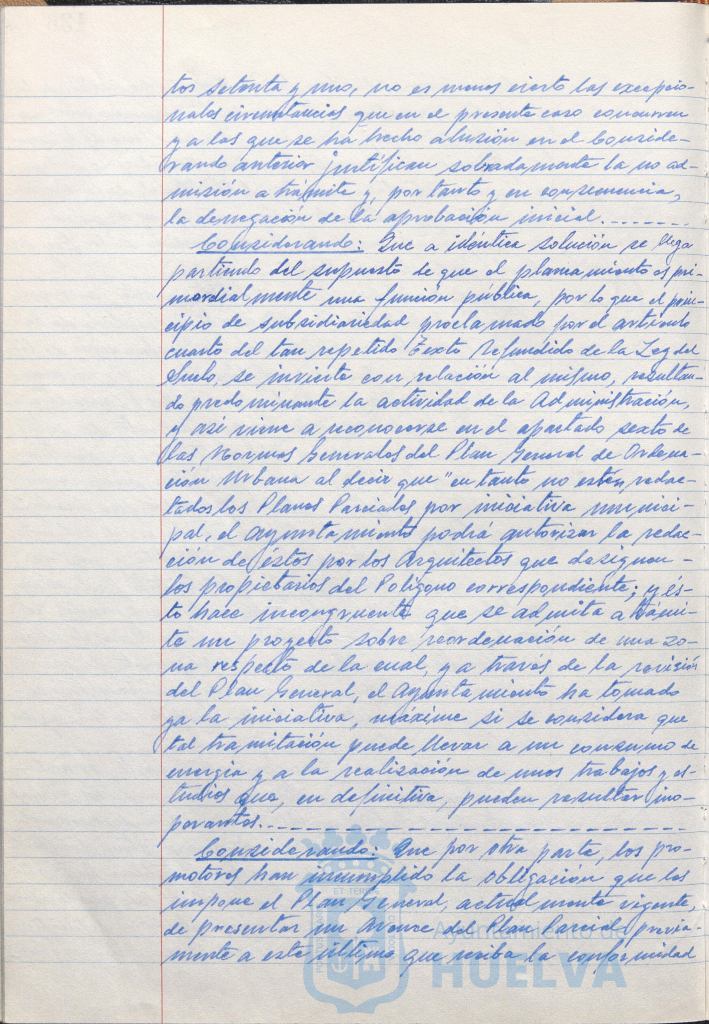 tos setenta y uno, no es menos cierto las excepcio-
nales circunstancias que en el presente caso concurren
y a las que se ha hecho alusión en el Conside-
rando anterior justifican sobradamente la no ad-
misión a trámite y, por tanto y en consecuencia,
la denegación de la aprobación inicial.-------
Considerando: Que a idéntica solución se llega
partiendo del supuesto de que el planeamiento es pri-
mordialmente una función pública, por lo que el prin-
cipio de subsidiariedad proclamado por el artículo
cuarto del tan repetido Texto Refundido de la Ley del
Suelo, se invierte con relación al mismo, resultan-
do predominante la actividad de la Administración,
y así viene a reconocerse en el apartado sexto de
las Normas Generales del Plan General de Ordena-
ción Urbana al decir que "en tanto no estén redac-
tados los Planes Parciales por iniciativa munici-
pal, el Ayuntamiento podrá autorizar la redac-
ción de éstos por los Arquitectos que designen-
los propietarios del Polígono correspondiente; y és-
to hace incongruente que se admita a trámi-
te un proyecto sobre reordenación de una zo-
na respecto de la cual, y a través de la revisión
del Plan General, el Ayuntamiento ha tomado
ya la iniciativa, máxime si se considera que
tal tramitación puede llevar a un consumo de
energía y a la realización de unos trabajos y es-
tudios que, en definitiva, pueden resultar ino-
perantes.----------------------------
Considerando: Que por otra parte, los pro-
motores han incumplido la obligación que les
impone el Plan General, actualmente vigente,
de presentar un Avance del Plan Parcial previa-
mente a este último que reciba la conformidad
Ayuntamiento de
HUELVA